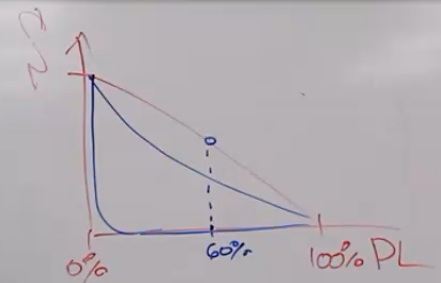 0%
60%
100% PL